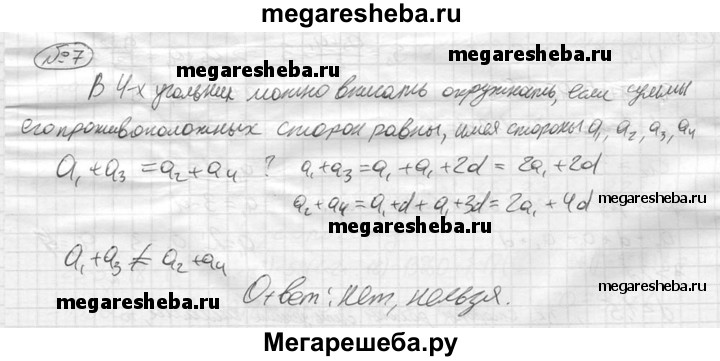 megaresheba.ru
№7
megaresheba.ru
megaresheba.ru
В 4-х угольник можно вписать окружность, если суммы
его противоположных сторон равны, имея стороны a₁, a₂, a₃, a₄
a₁+a₃ = a₂+a₄ ? a₁+a₃ = a₁+a₁+2d = 2a₁+2d
megaresheba.ru
a₂+a₄ = a₁+d+a₁+3d = 2a₁+4d
megaresheba.ru
a₁+a₃ ≠ a₂+a₄
megaresheba.ru
megaresheba.ru
Ответ: нет, нельзя.
Мегарешеба.ру